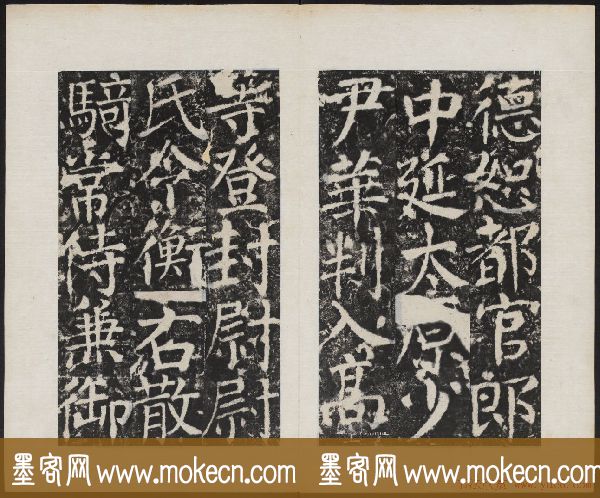 德恕都官郎
中延太原少
尹華判入高
等登封尉尉
氏令衡右散
騎常侍兼御
墨客网 www.mokecn.com 墨客网 www.mokecn.com